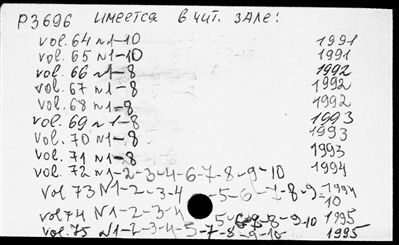 P3696 имеется в чит. зале:
vol. 64 N1-10 1991
vol. 65 N1-10 1991
vol. 66 N1-8 1992
vol. 67 N1-8 1992
vol. 68 N1-8 1992
vol. 69 N1-8 1993
vol. 70 N1-8 1993
vol. 71 N1-8 1993
vol. 72 N1-2-3-4-6-7-8-9-10 1994
vol 73 N1-2-3-4-5-6-7-8-9-10 1994
vol 74 N1-2-3-4-5-6-7-8-9-10 1995
vol. 75 N1-2-3-4-5-7-8-9-10 1995